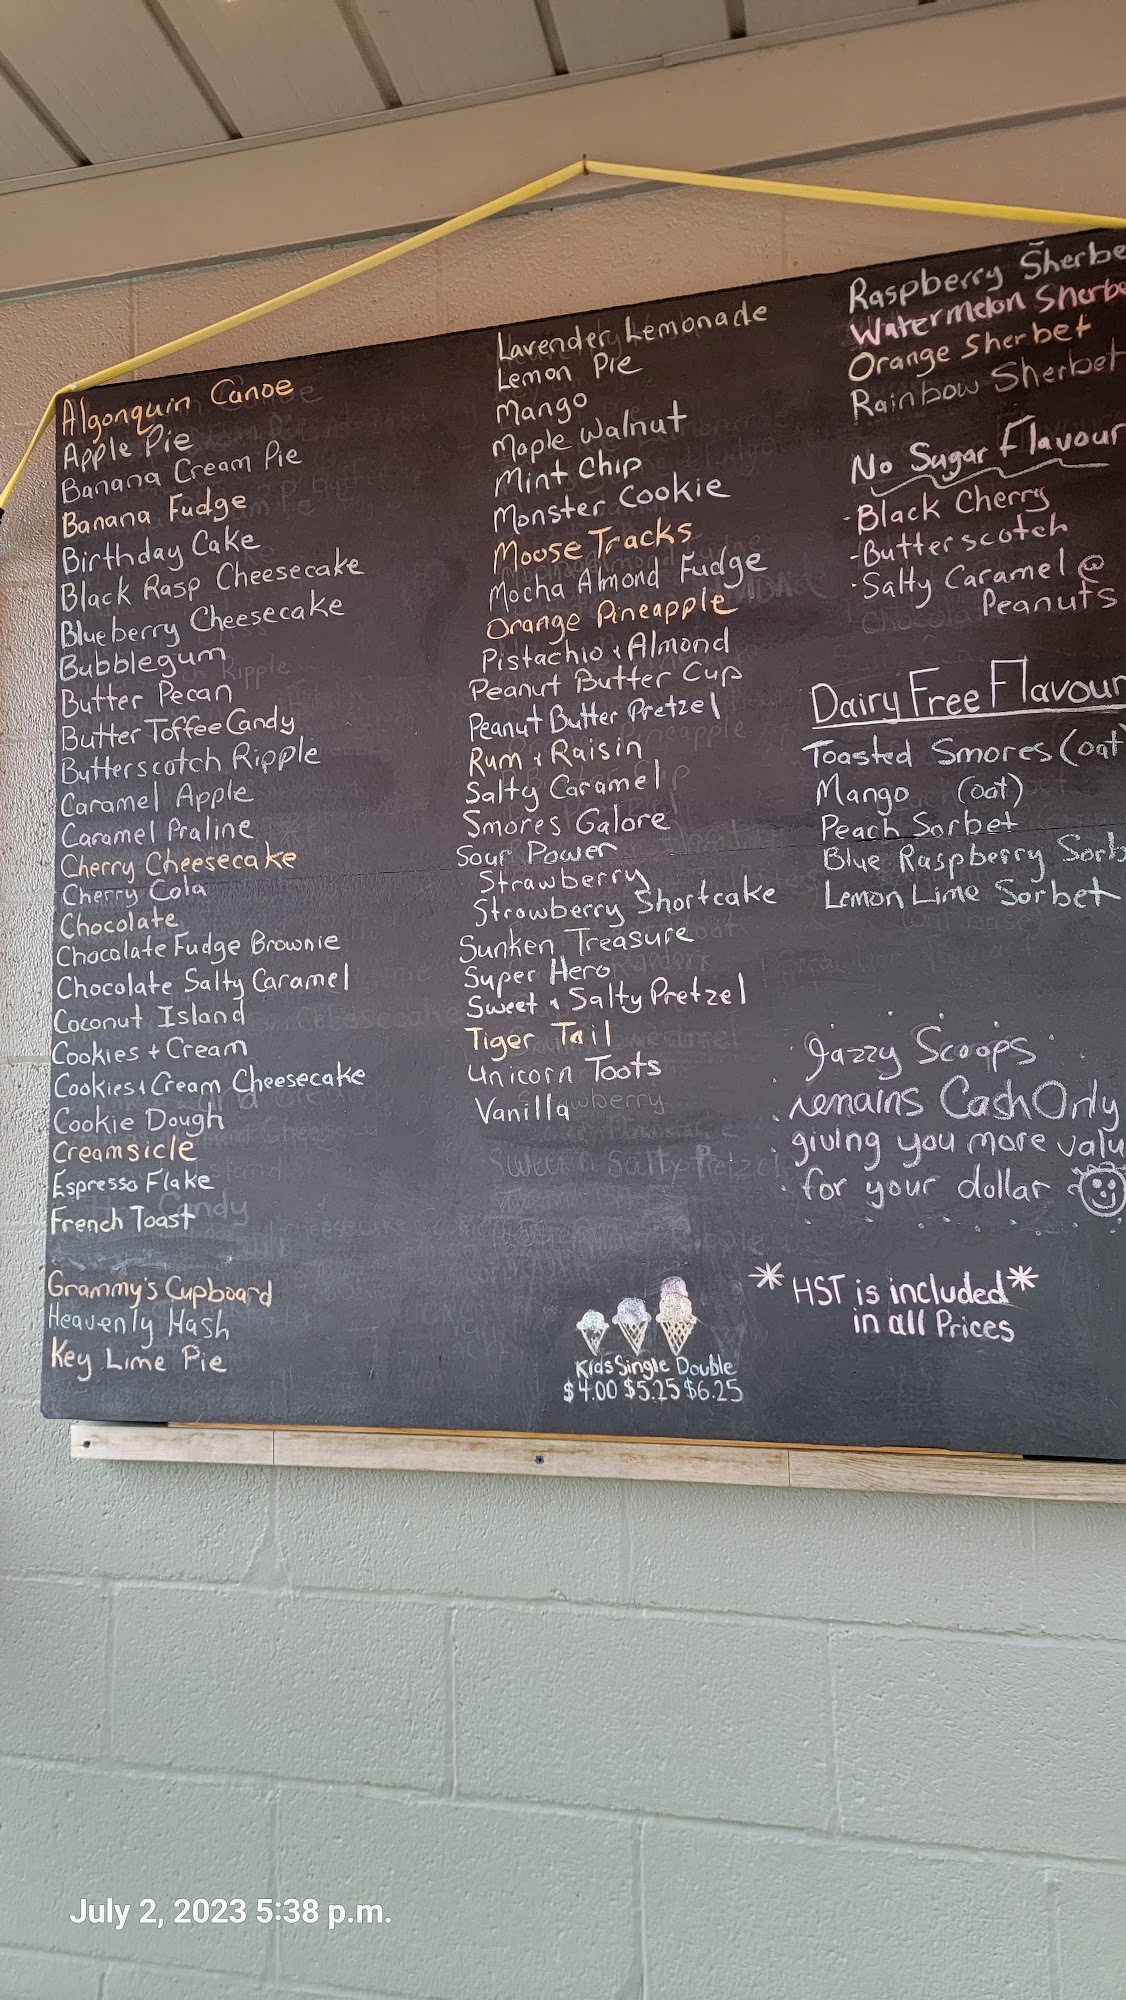 Algonquin Canoe
Apple Pie
Banana Cream Pie
Banana Fudge
Birthday Cake
Black Rasp Cheesecake
Blueberry Cheesecake
Bubblegum
Butter Pecan
Butter Toffee Candy
Butterscotch Ripple
Caramel Apple
Caramel Praline
Cherry Cheesecake
Cherry Cola
Chocolate
Chocolate Fudge Brownie
Chocolate Salty Caramel
Coconut Island
Cookies + Cream
Cookies & Cream Cheesecake
Cookie Dough
Creamsicle
Espresso Flake
French Toast
Grammy's Cupboard
Heavenly Hash
Key Lime Pie
Lavender Lemonade
Lemon Pie
Mango
Maple Walnut
Mint Chip
Monster Cookie
Moose Tracks
Mocha Almond Fudge
Orange Pineapple
Pistachio & Almond
Peanut Butter Cup
Peanut Butter Pretzel
Rum & Raisin
Salty Caramel
Smores Galore
Sour Power
Strawberry
Strawberry Shortcake
Sunken Treasure
Super Hero
Sweet & Salty Pretzel
Tiger Tail
Unicorn Toots
Vanilla
Kids Single Double
$4.00 $5.25 $6.25
Raspberry Sherbe
Watermelon Sherbe
Orange Sherbet
Rainbow Sherbet
No Sugar Flavour
-Black Cherry
-Butterscotch
-Salty Caramel @
Peanuts
Dairy Free Flavour
Toasted Smores (oat)
Mango (oat)
Peach Sorbet
Blue Raspberry Sorb
Lemon Lime Sorbet
Jazzy Scoops
remains Cash Only
giving you more valu
for your dollar
*HST is included*
in all Prices
July 2, 2023 5:38 p.m.